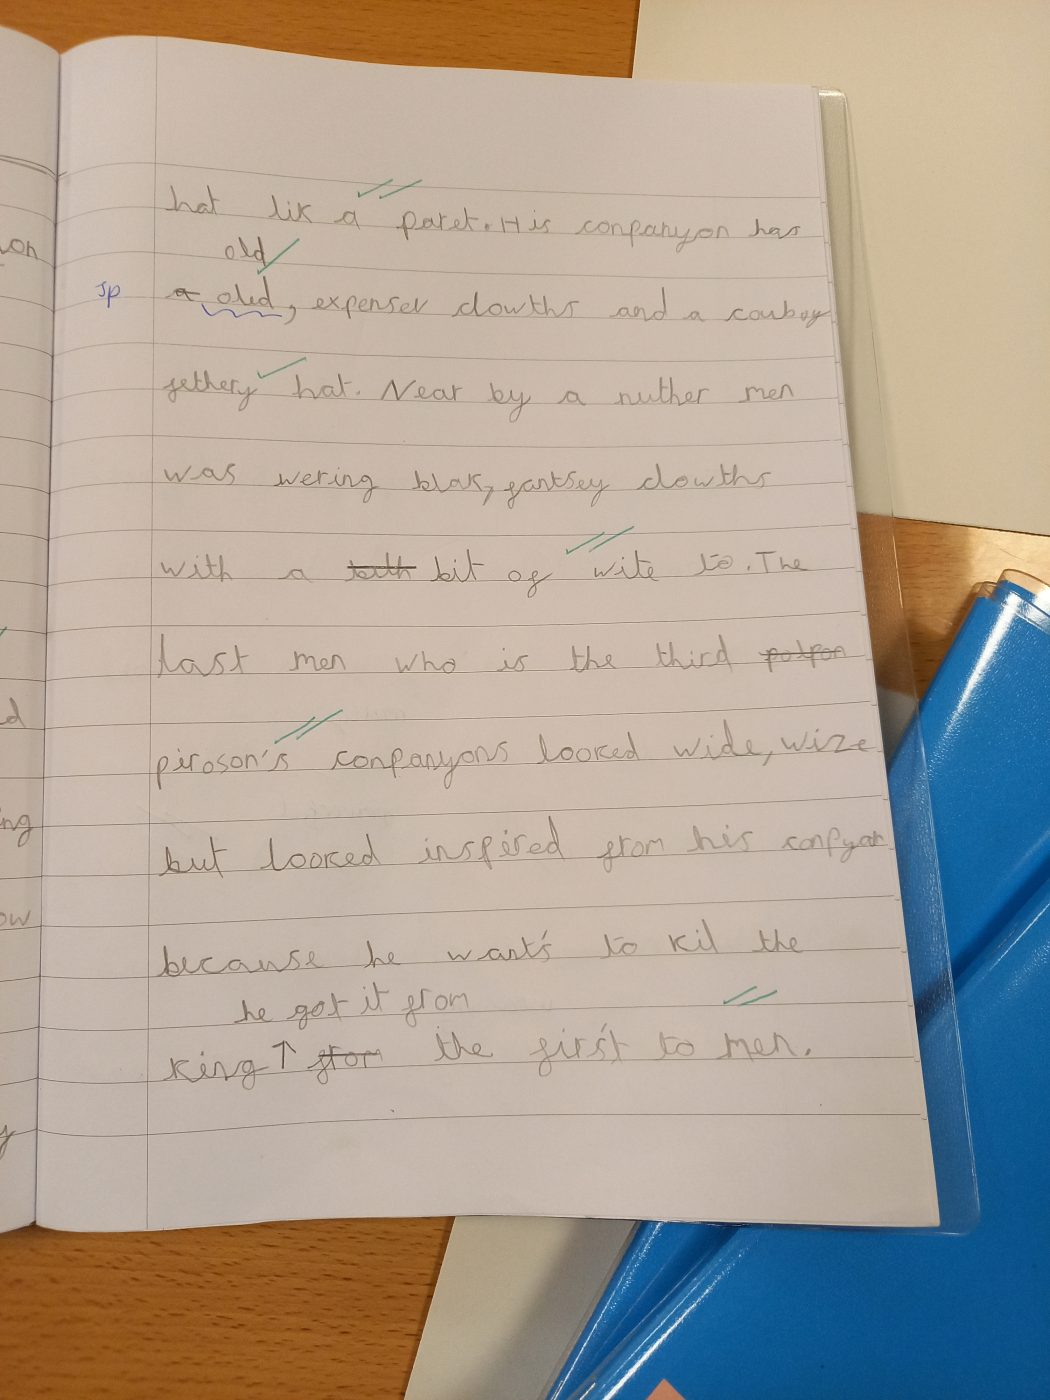 hat lik a paret. His conpanyon has
old
sp a oled, expensev clowths and a couboy
fethery hat. Near by a nuther men
was wering blak, fantsey clowths
with a bit of wite to. The
last men who is the third
piroson's conpanyons looked wide, wize
but looked inspired from his conpyan
because he want's to kil the
he got it from
king ↑ from the first to men.
on
d
ng
ow
y